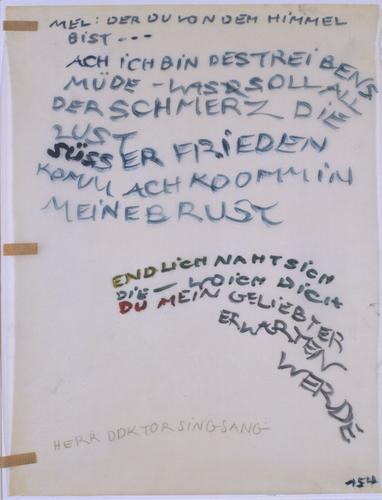 MEL: DER DU VON DEM HIMMEL
BIST ---
ACH ICH BIN DES TREIBENS
MÜDE - WAS SOLL ALL
DER SCHMERZ DIE
LUST
SÜSSER FRIEDEN
KOMM ACH KOOMM IN
MEINE BRUST
ENDLICH NAHT SICH
DIE - WO ICH DICH
DU MEIN GELIEBTER
ERWARTEN
WERDE
HERR DOKTOR SINGSANG
154